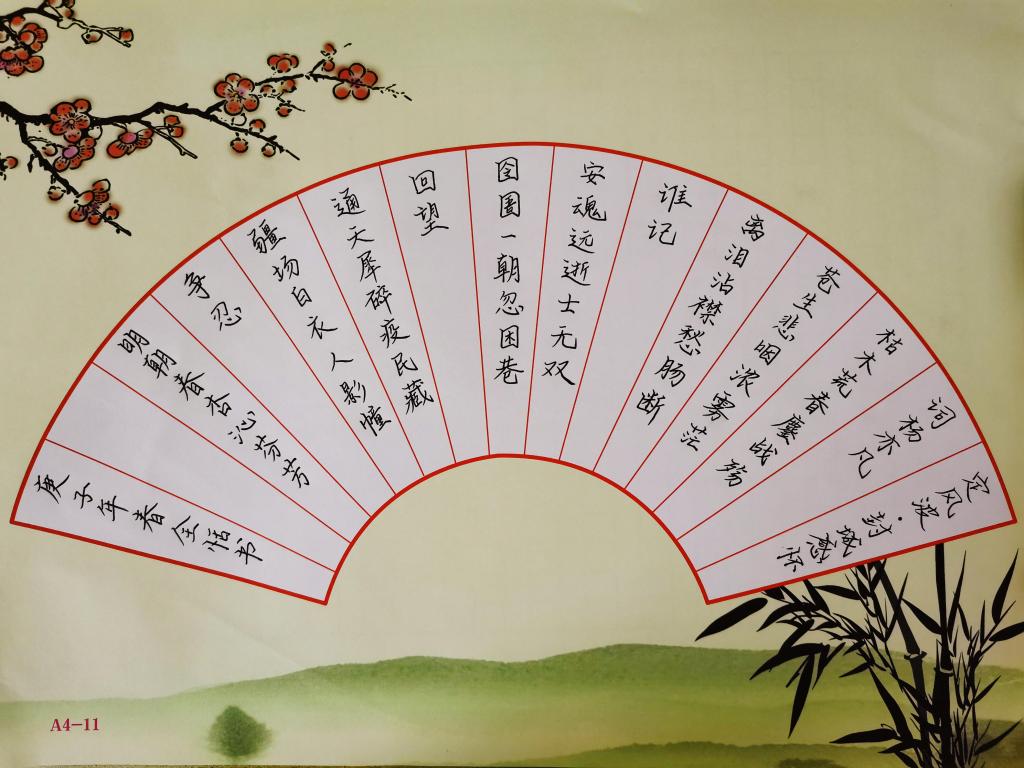 定风波·封城感怀
词 杨亦凡
枯木荒春鏖战殇
苍生悲咽浓雾茫
离泪沾襟愁肠断
谁记
安魂远逝士无双
囹圄一朝忽困巷
回望
通天犀碎疫民藏
疆场白衣人影幢
争忍
明朝春杏沁芬芳
庚子年春全恬书
A4-11